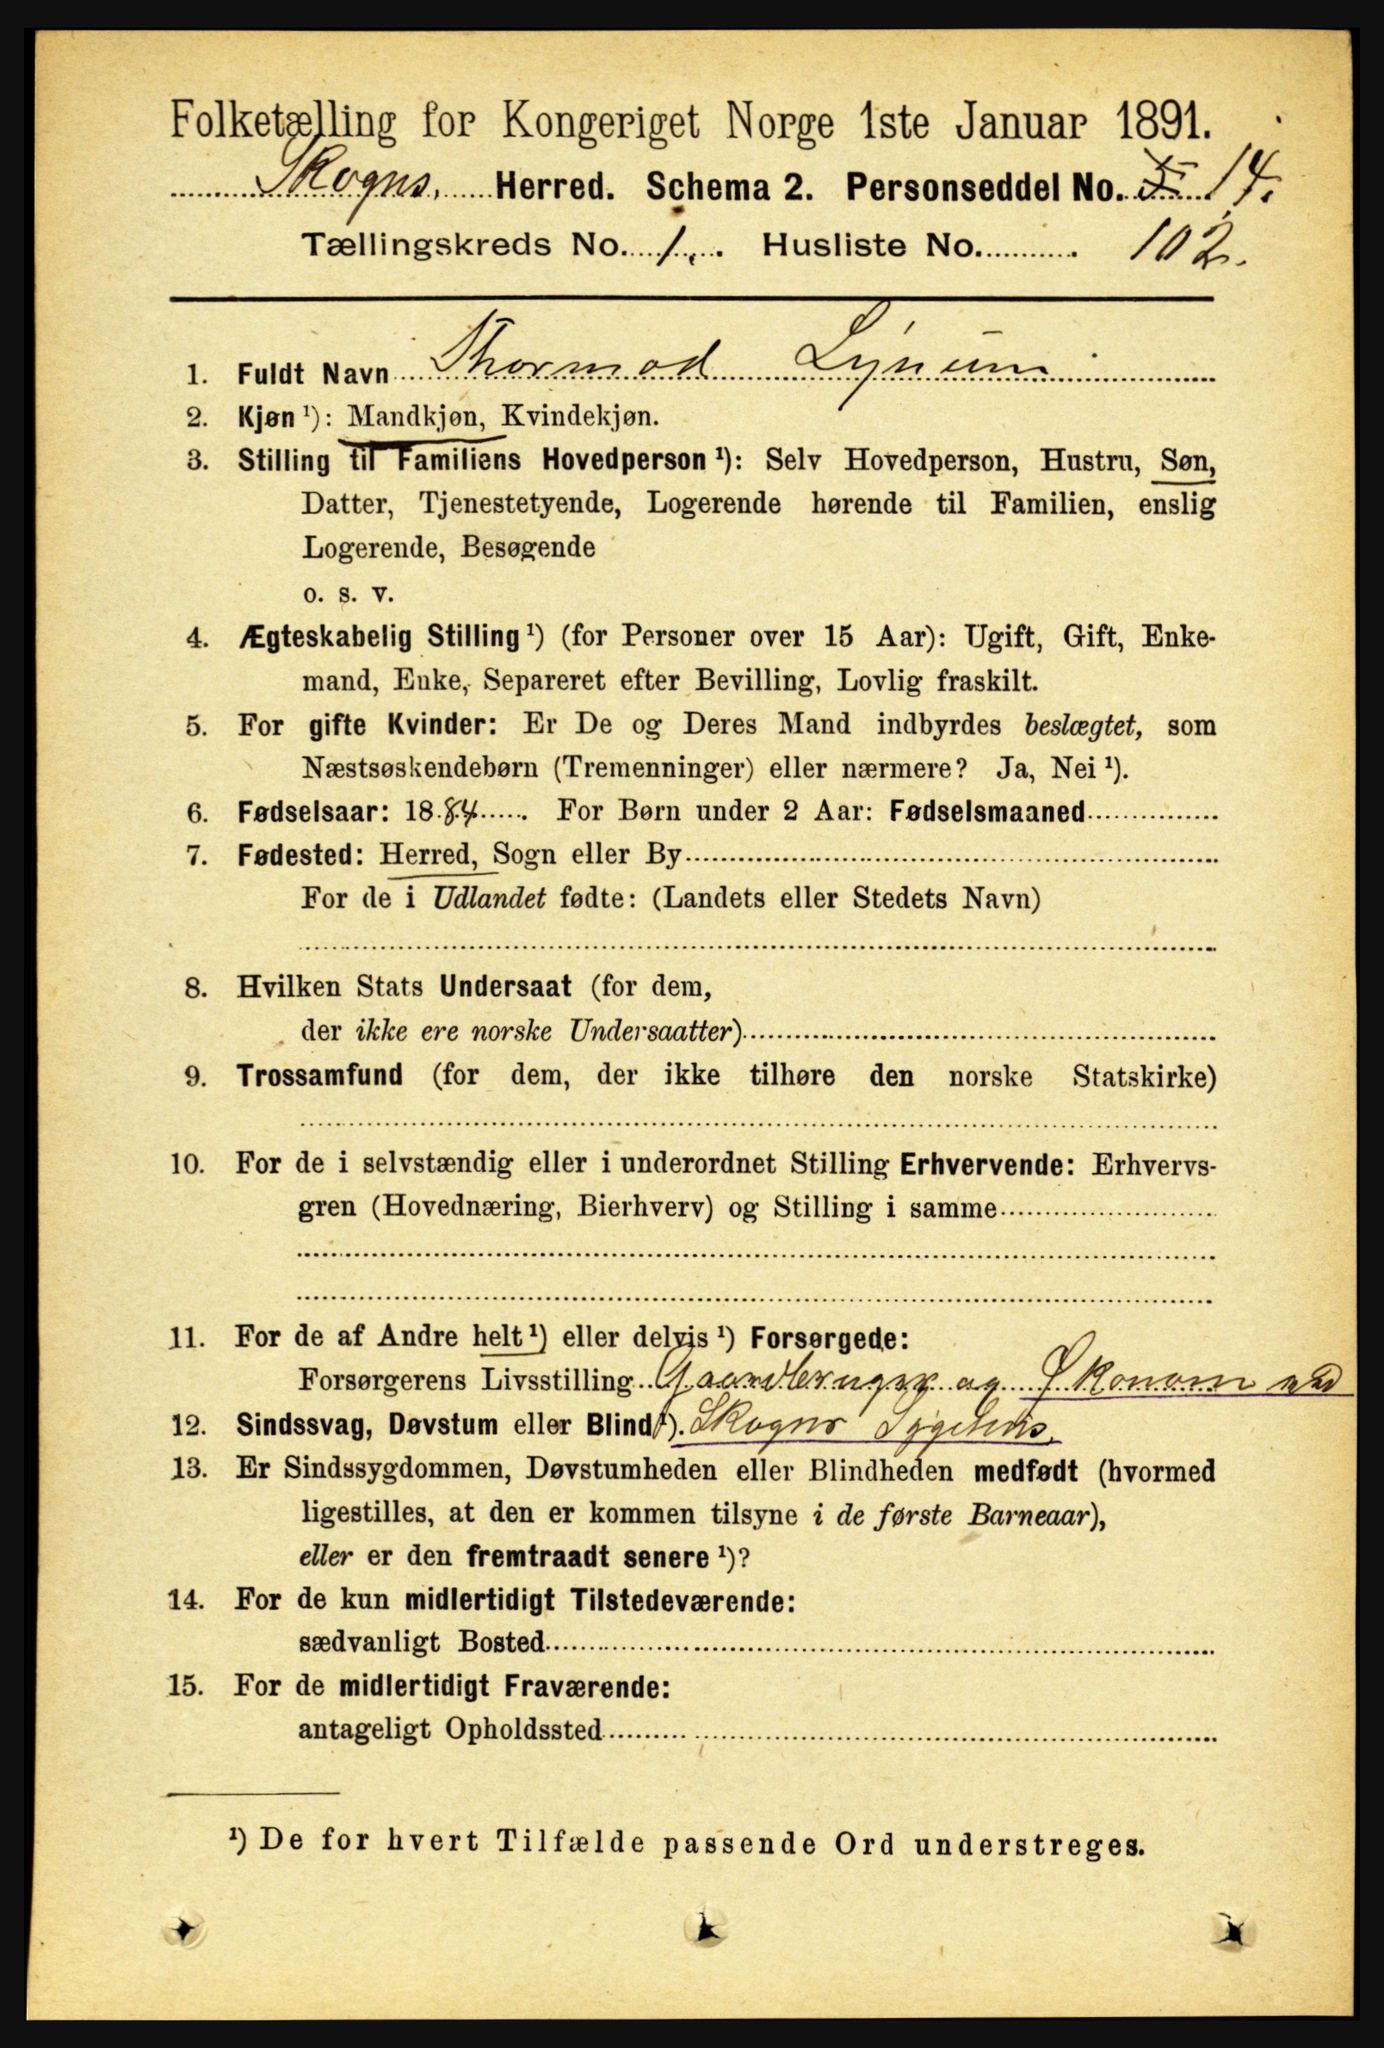 Folketælling for Kongeriget Norge 1ste Januar 1891.
Skogns Herred. Schema 2. Personseddel No. 14.
Tællingskreds No. 1. Husliste No. 102.
1. Fuldt Navn Thormod Lynum
2. Kjøn ¹): Mandkjøn, Kvindekjøn.
3. Stilling til Familiens Hovedperson ¹): Selv Hovedperson, Hustru, Søn,
Datter, Tjenestetyende, Logerende hørende til Familien, enslig
Logerende, Besøgende
o. s. v.
4. Ægteskabelig Stilling ¹) (for Personer over 15 Aar): Ugift, Gift, Enke-
mand, Enke, Separeret efter Bevilling, Lovlig fraskilt.
5. For gifte Kvinder: Er De og Deres Mand indbyrdes beslægtet, som
Næstsøskendebørn (Tremenninger) eller nærmere? Ja, Nei ¹).
6. Fødselsaar: 1884. For Børn under 2 Aar: Fødselsmaaned
7. Fødested: Herred, Sogn eller By
For de i Udlandet fødte: (Landets eller Stedets Navn)
8. Hvilken Stats Undersaat (for dem,
der ikke ere norske Undersaatter)
9. Trossamfund (for dem, der ikke tilhøre den norske Statskirke)
10. For de i selvstændig eller i underordnet Stilling Erhvervende: Erhvervs-
gren (Hovednæring, Bierhverv) og Stilling i samme
11. For de af Andre helt ¹) eller delvis ¹) Forsørgede:
Forsørgerens Livsstilling Gaardbruger og Økonom ved
12. Sindssvag, Døvstum eller Blind ¹). Skogns Sygehus.
13. Er Sindssygdommen, Døvstumheden eller Blindheden medfødt (hvormed
ligestilles, at den er kommen tilsyne i de første Barneaar),
eller er den fremtraadt senere ¹)?
14. For de kun midlertidigt Tilstedeværende:
sædvanligt Bosted
15. For de midlertidigt Fraværende:
antageligt Opholdssted
¹) De for hvert Tilfælde passende Ord understreges.